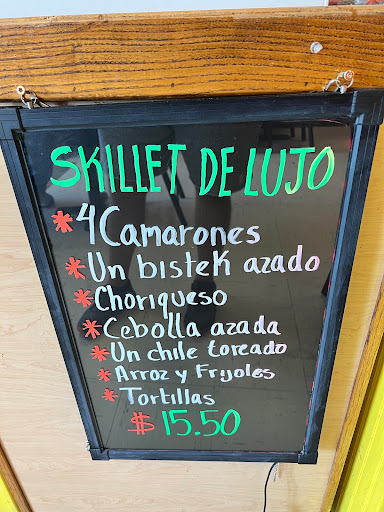 SKILLET DE LUJO
* 4 Camarones
* Un bistek azado
* Choriqueso
* Cebolla azada
* Un chile toreado
* Arroz y Frijoles
* Tortillas
$ 15.50